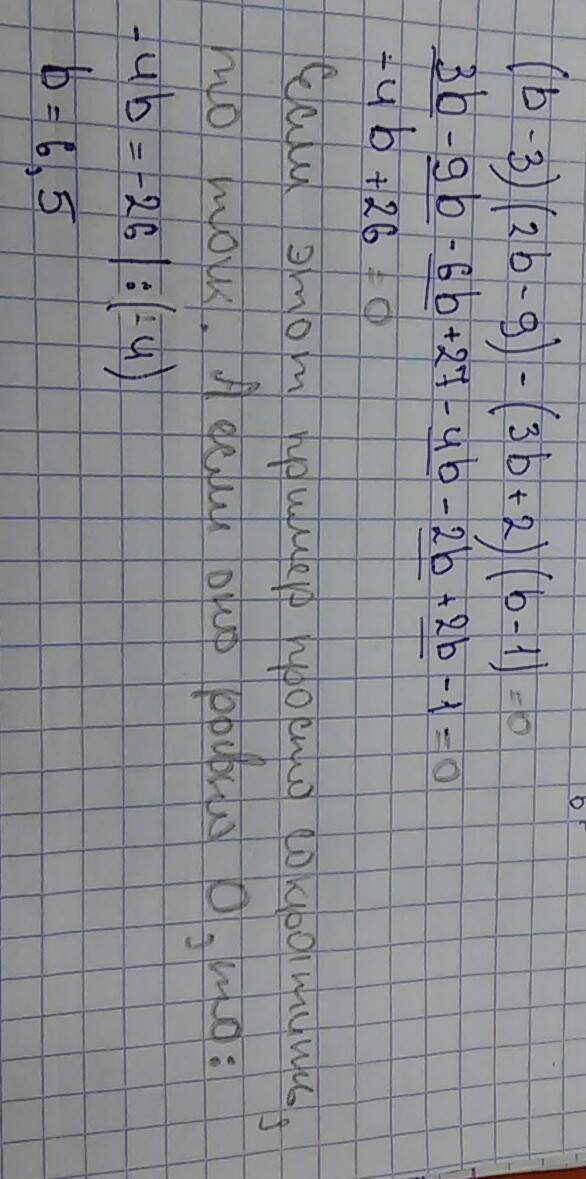 (b-3)(2b-9)-(3b+2)(b-1)=0
3b-9b-6b+27-4b-2b+2b-1=0
-4b+26=0
Если этот пример просто сократить,
то так. А если оно равно 0, то:
-4b=-26|:(-4)
b=6,5